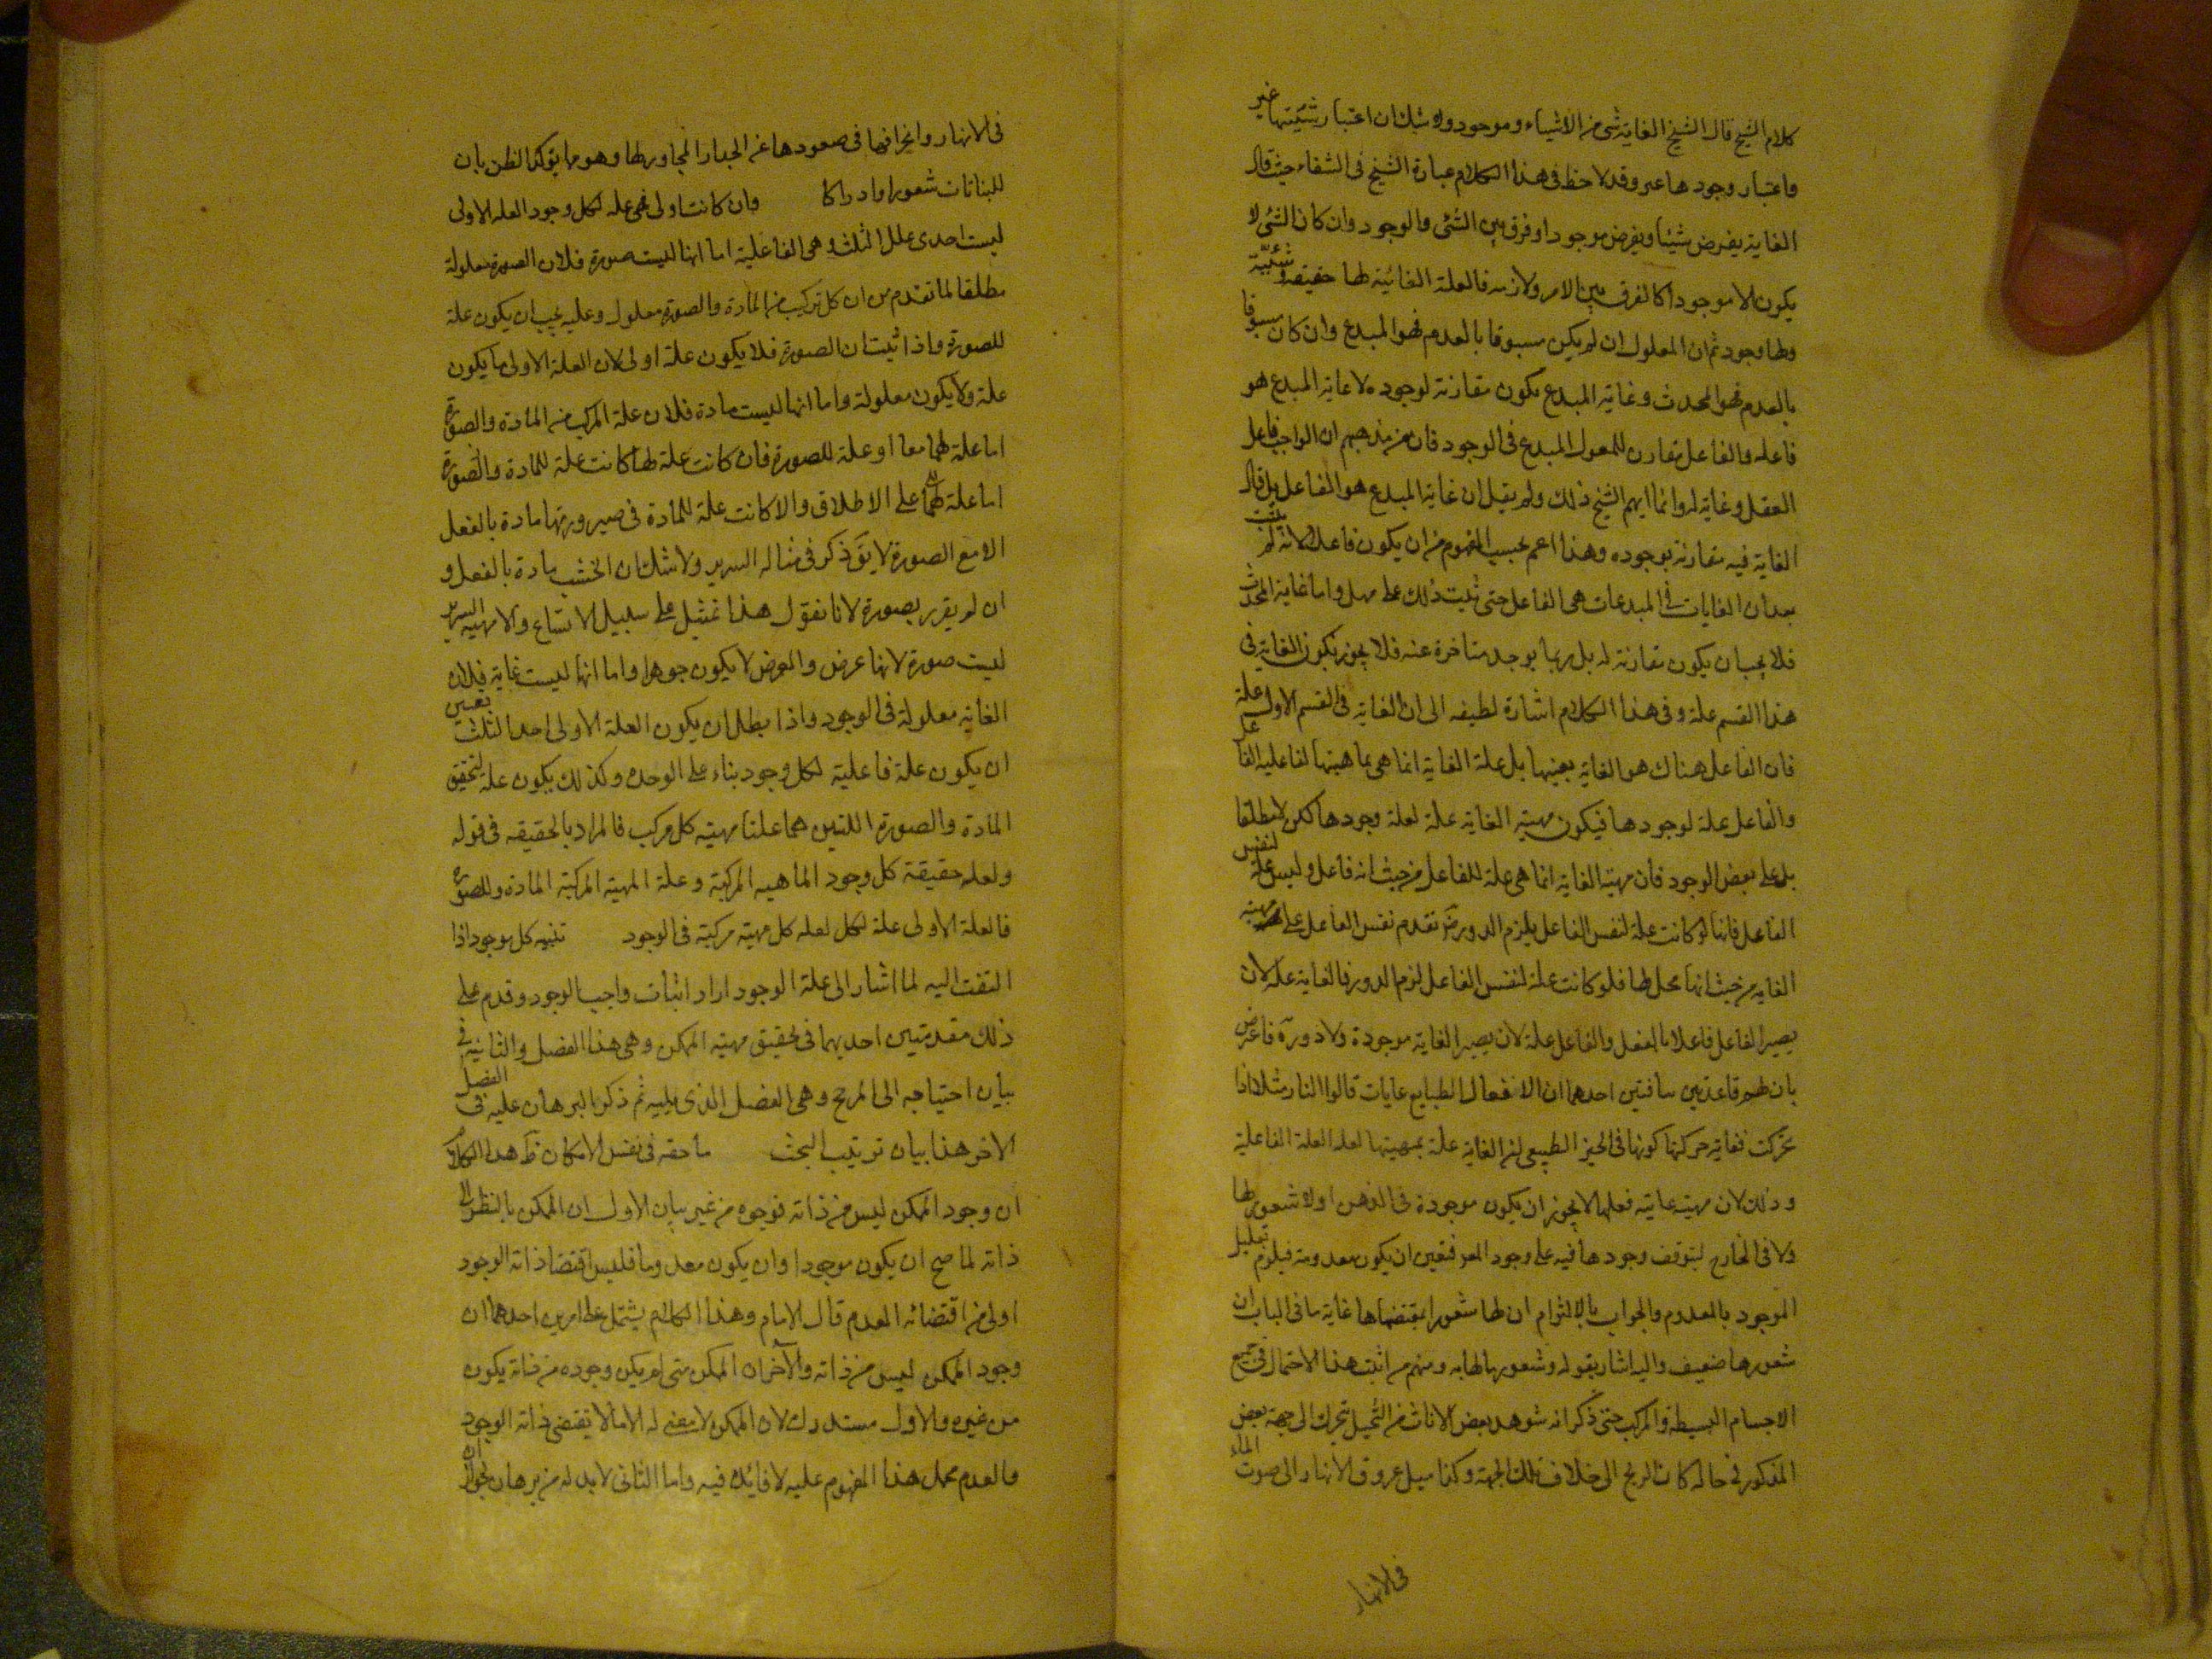 كلام الشيخ قال الشيخ الغاية شئ من الاشياء وموجود ولا شك ان اعتبار شيئيتها غير
واعتبار وجودها غير وقد لاحظ فى هذا الكلام عبارة الشيخ فى الشفاء حيث قال
الغاية يفرض شيئا ويفرض موجودا وفرق بين الشئ والوجود وان كان الشئ لا
يكون الا موجودا كالفرق بين الامر ولازمه فالعلة الغائية لها حقيقة وشيئية
ولها وجود ثم ان المعلول ان لم يكن مسبوقا بالعدم فهو المبدع وان كان مسبوقا
بالعدم فهو المحدث وغاية المبدع يكون مقارنة لوجوده لا غاية المبدع هو
فاعله والفاعل مقارن للمعلول المبدع فى الوجود فان من مذهبهم ان الواجب فاعل
العقل وغاية له وانما ابهم الشيخ ذلك ولم يقل ان غاية المبدع هو الفاعل بل قال
الغاية فيه مقارنة بوجوده وهذا اعم بحسب المفهوم من ان يكون فاعلا لانه لم يثبت
بعد ان الغايات فى المبدعات هى الفاعل حتى تثبت ذلك على مهل واما غاية المحدث
فلا يجب ان يكون مقارنة له بل ربما يوجد متاخرة عنه فلا يجوز يكون الغاية فى
هذا القسم علة وفى هذا الكلام اشارة لطيفة الى ان الغاية فى القسم الاول علة
فان الفاعل هناك هو الغاية بعينها بل علة الغاية انما هى بماهيتها لفاعلية الفاعل
والفاعل علة لوجودها فيكون مهية الغاية علة لعلة وجودها لكن لا مطلقا
بل على بعض الوجود فان مهية الغاية انما هى علة للفاعل من حيث انه فاعل وليس علة لنفس
الفاعل فانها لو كانت علة لنفس الفاعل يلزم الدور ضرورة تقدم نفس الفاعل على مهية
الغاية من حيث انها محل لها فلو كانت علة لنفس الفاعل لزم الدور فالغاية علة لان
يصير الفاعل فاعلا بالفعل والفاعل علة لان يصير الغاية موجودة ولا دور فاعترض
بان لهم قاعدتين احدهما ان الافعال الطبايع غايات قالوا النار مثلا اذا
تحركت فغاية حركتها كونها فى الحيز الطبيعى الغاية علة بمهيتها لعلة العلة الفاعلة
وذلك لان مهية غاية فعلها لا يجوز ان يكون موجودة فى الذهن اولا شعور لها
ولا فى الخارج لتوقف وجودها فيه على وجود فتعين ان يكون معدومة فيلزم تعليل
الموجود بالمعدوم والجواب بالالتزام ان لها شعورا بمقتضاها غاية ما فى الباب ان
شعورها ضعيف واليه اشار بقوله وشعور بها له ومنهم من اثبت هذا الاحتمال فى جميع
الاجسام البسيطة والمركب حتى ذكر انه شوهد بعض الاناث من النخيل تحرك الى جهة بعض
المذكور فى حالة كان الريح الى خلاف تلك الجهة وكذا ميل عروق الانهار الى صوت الماء
فى الانهار
فى الانهار وانحرافها فى صعودها عن الجدار المجاور لها وهو مما يؤكد الظن بان
للنباتات شعورا وادراكا وان كانت اولى فهى علة لكل وجود العلة الاولى
ليست احدى علل الثلث وهى الفاعلية اما انها ليست صورة فلان الصورة معلولة
مطلقا لما تقدم من ان كل تركيب من المادة والصورة معلول وعليه يجب ان يكون علة
للصورة واذا ثبت ان الصورة فلا يكون علة اولى لان العلة الاولى ما يكون
علة ولا يكون معلولة واما انها ليست مادة فلان علة المركب من المادة والصورة
اما علة لهما معا او علة للصورة فان كانت علة لها كانت علة للمادة والصورة
اما علة لهما على الاطلاق والا كانت علة للمادة فى صيرورتها مادة بالفعل
الا مع الصورة لا يق ذكر فى مثاله السرير ولا شك ان الخشب مادة بالفعل و
ان لم يقرر بصورة لانا نقول هذا تمثيل على سبيل الاتساع والا مهية السرير
ليست صورة لانها عرض والعرض لا يكون جوهرا واما انها ليست غاية فلان
الغاية معلولة فى الوجود واذا بطل ان يكون العلة الاولى احد الثلث تعين
ان يكون علة فاعلية لكل وجود بناء على الوحدة وكذلك يكون علة لتحقق
المادة والصورة اللتين هما علتا مهية كل مركب فالمراد بالحقيقة فى قوله
ولعلة حقيقة كل وجود الماهية المركبة وعلة المهية المركبة المادة والصورة
فالعلة الاولى علة لكل لعلة كل مهية مركبة فى الوجود تنبيه كل موجود اذا
التفت اليه لما اشار الى علة الوجود اراد اثبات واجب الوجود وقدم على
ذلك مقدمتين احديهما فى تحقيق مهية الممكن وهى هذا الفصل والثانية فى
بيان احتياجه الى المرجح وهى الفصل الذى يليه ثم ذكر البرهان عليه فى الفصل
الاخر هذا بيان ترتيب البحث ما حقه فى نفس الامكان هذا الكلام
ان وجود الممكن ليس من ذاته فوجوه من غير بيان الاول ان الممكن بالنظر الى
ذاته لما صح ان يكون موجودا وان يكون معدوما فليس اقتضا ذاته الوجود
اولى من اقتضائه العدم قال الامام وهذا الكلام يشتمل على امرين احدهما ان
وجود الممكن ليس من ذاته والآخر ان الممكن متى لم يكن وجوده من ذاته يكون
من غيره والاول مستدرك لان الممكن لا معنى له الا ما لا يقتضى ذاته الوجود
والعدم محمل هذا المفهوم عليه لا فائدة فيه واما الثانى لا بد له من برهان لجواز ان